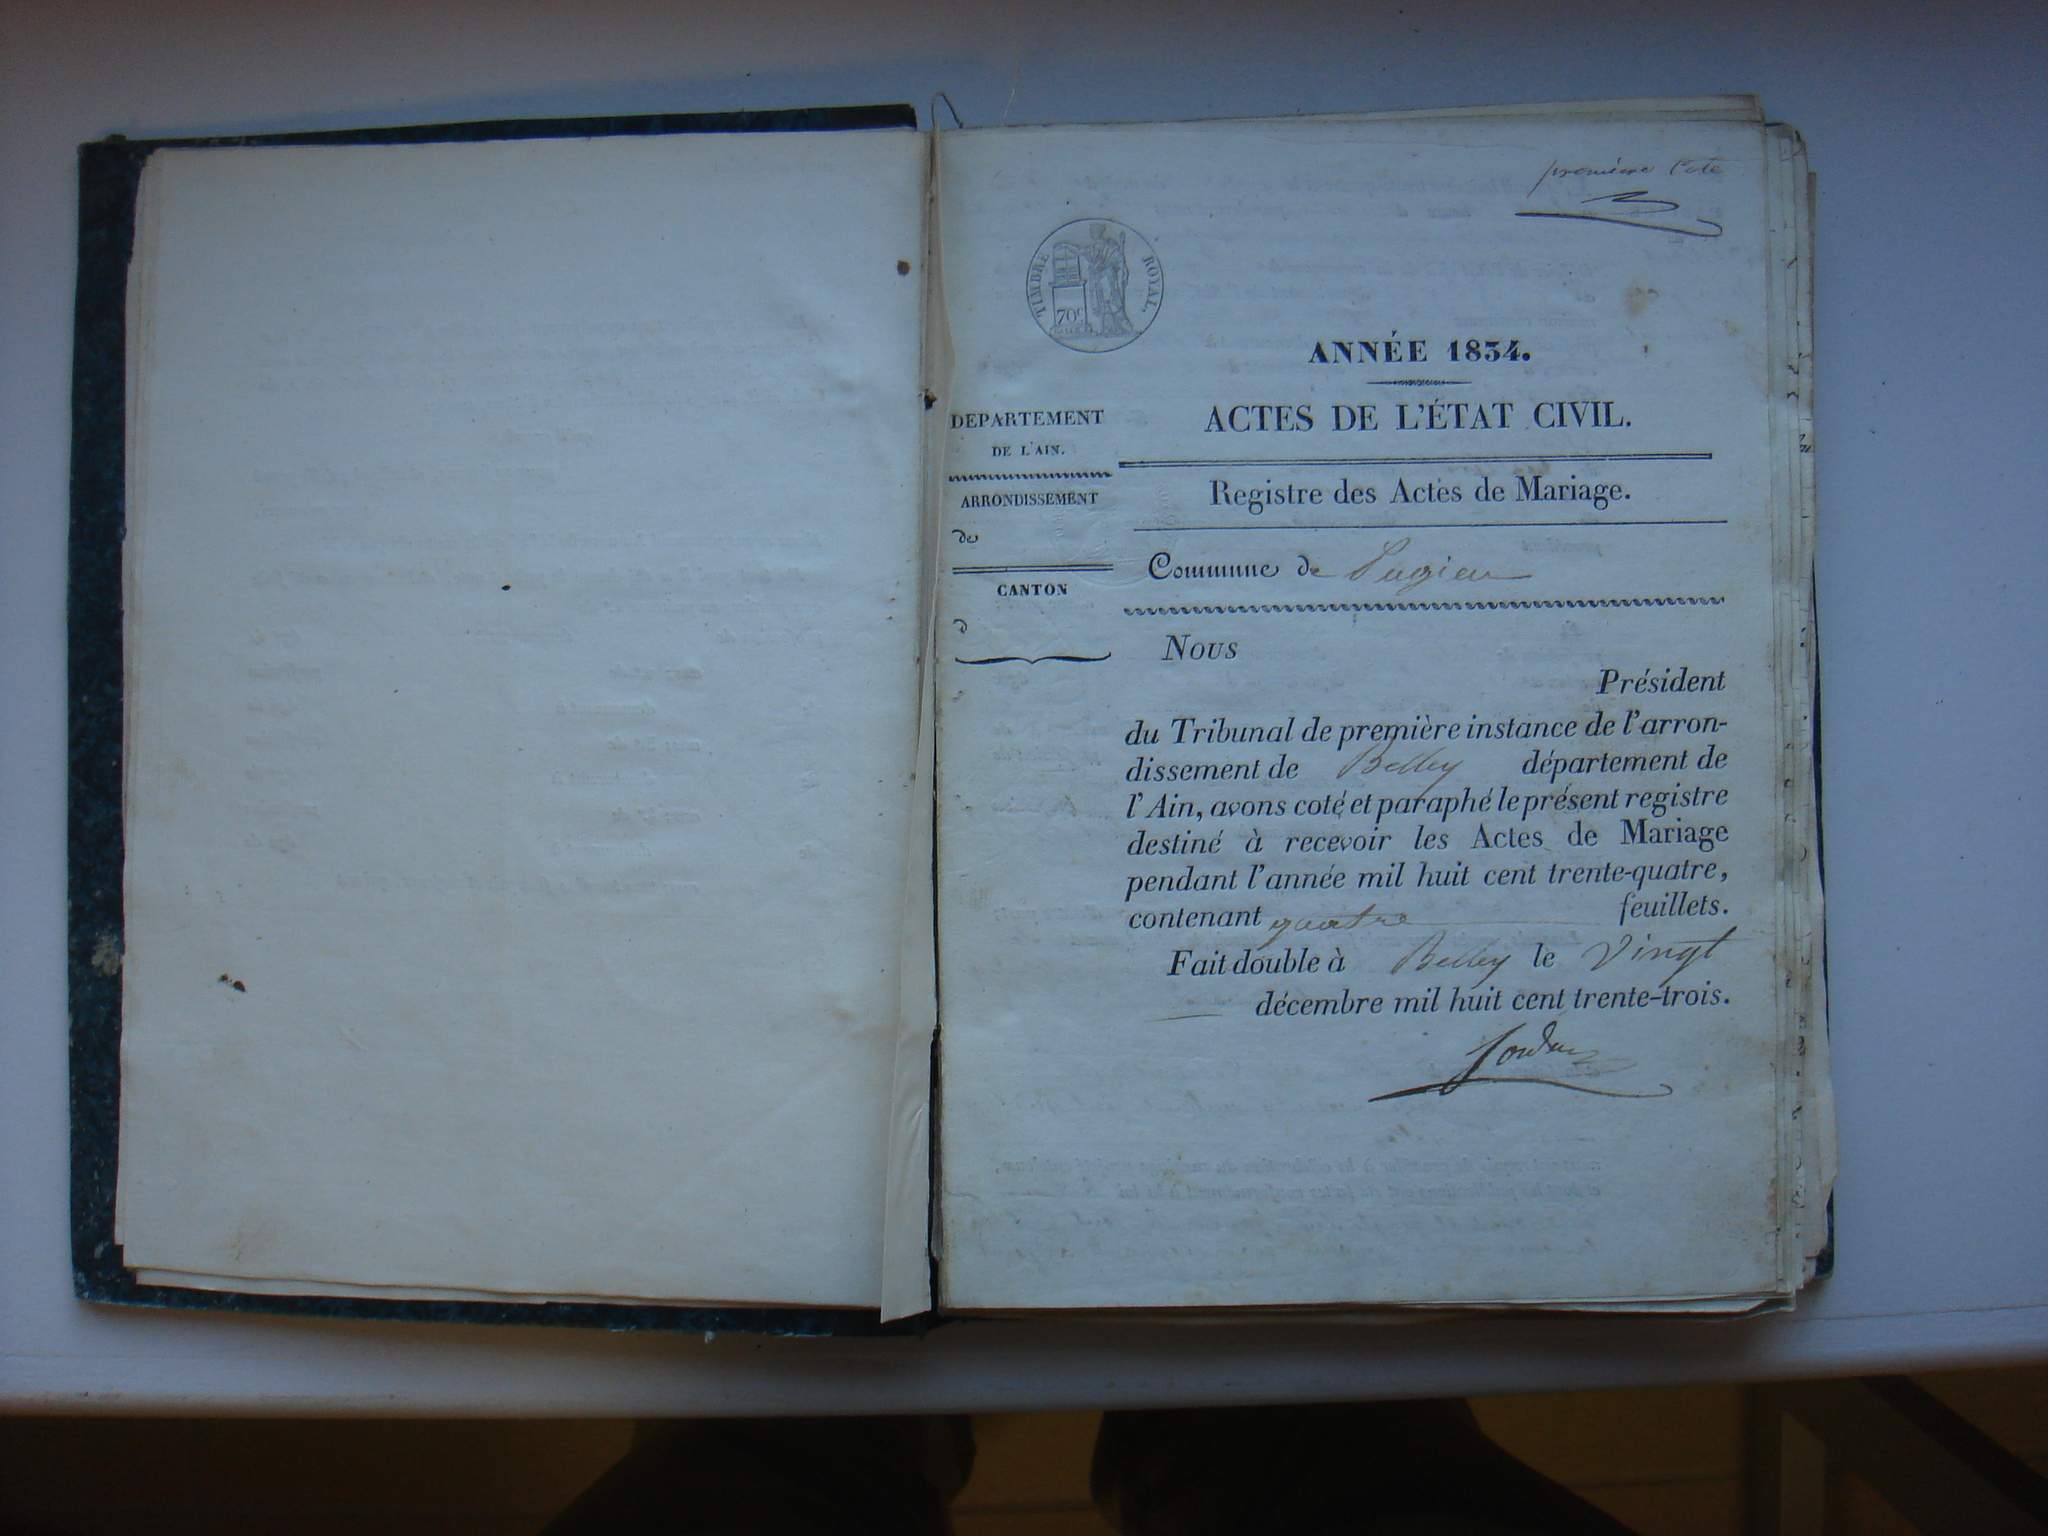 première Cote
TIMBRE ROYAL.
70c
ANNÉE 1834.
ACTES DE L'ÉTAT CIVIL.
DEPARTEMENT
DE L'AIN.
ARRONDISSEMENT
de
CANTON
d
Registre des Actes de Mariage.
Commune de Pugieu
Nous
Président
du Tribunal de première instance de l'arron-
dissement de Belley département de
l'Ain, avons coté et paraphé le présent registre
destiné à recevoir les Actes de Mariage
pendant l'année mil huit cent trente-quatre,
contenant quatre feuillets.
Fait double à Belley le Vingt
décembre mil huit cent trente-trois.